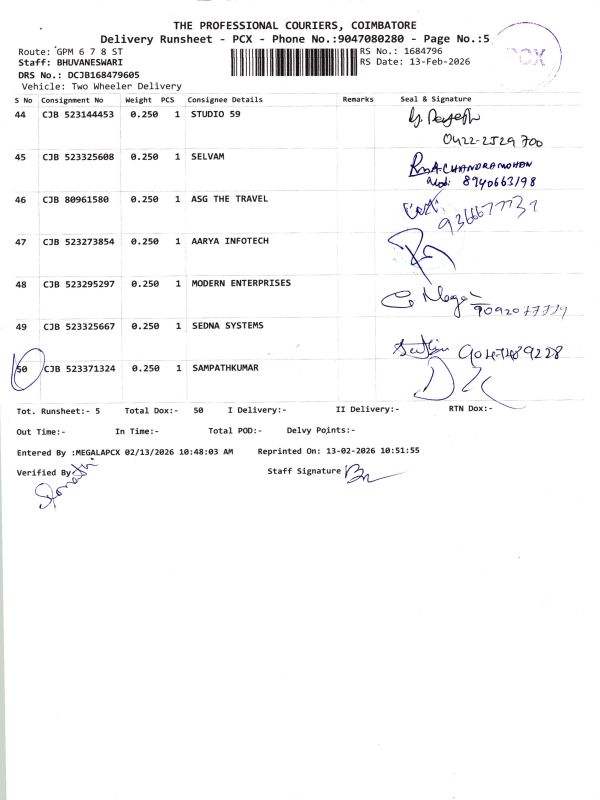 THE PROFESSIONAL COURIERS, COIMBATORE
Delivery Runsheet - PCX - Phone No.:9047080280 - Page No.:5
PCX
Route: GPM 6 7 8 ST
RS No.: 1684796
Staff: BHUVANESWARI
RS Date: 13-Feb-2026
DRS No.: DCJB168479605
Vehicle: Two Wheeler Delivery
S No Consignment No Weight PCS Consignee Details Remarks Seal & Signature
44 CJB 523144453 0.250 1 STUDIO 59
0422-2529 700
45 CJB 523325608 0.250 1 SELVAM A.CHANDRAMOHAN
Mob: 8940663198
46 CJB 80961580 0.250 1 ASG THE TRAVEL
47 CJB 523273854 0.250 1 AARYA INFOTECH
48 CJB 523295297 0.250 1 MODERN ENTERPRISES
49 CJB 523325667 0.250 1 SEDNA SYSTEMS
50 CJB 523371324 0.250 1 SAMPATHKUMAR
Tot. Runsheet:- 5 Total Dox:- 50 I Delivery:- II Delivery:- RTN Dox:-
Out Time:- In Time:- Total POD:- Delvy Points:-
Entered By :MEGALAPCX 02/13/2026 10:48:03 AM Reprinted On: 13-02-2026 10:51:55
Verified By Staff Signature